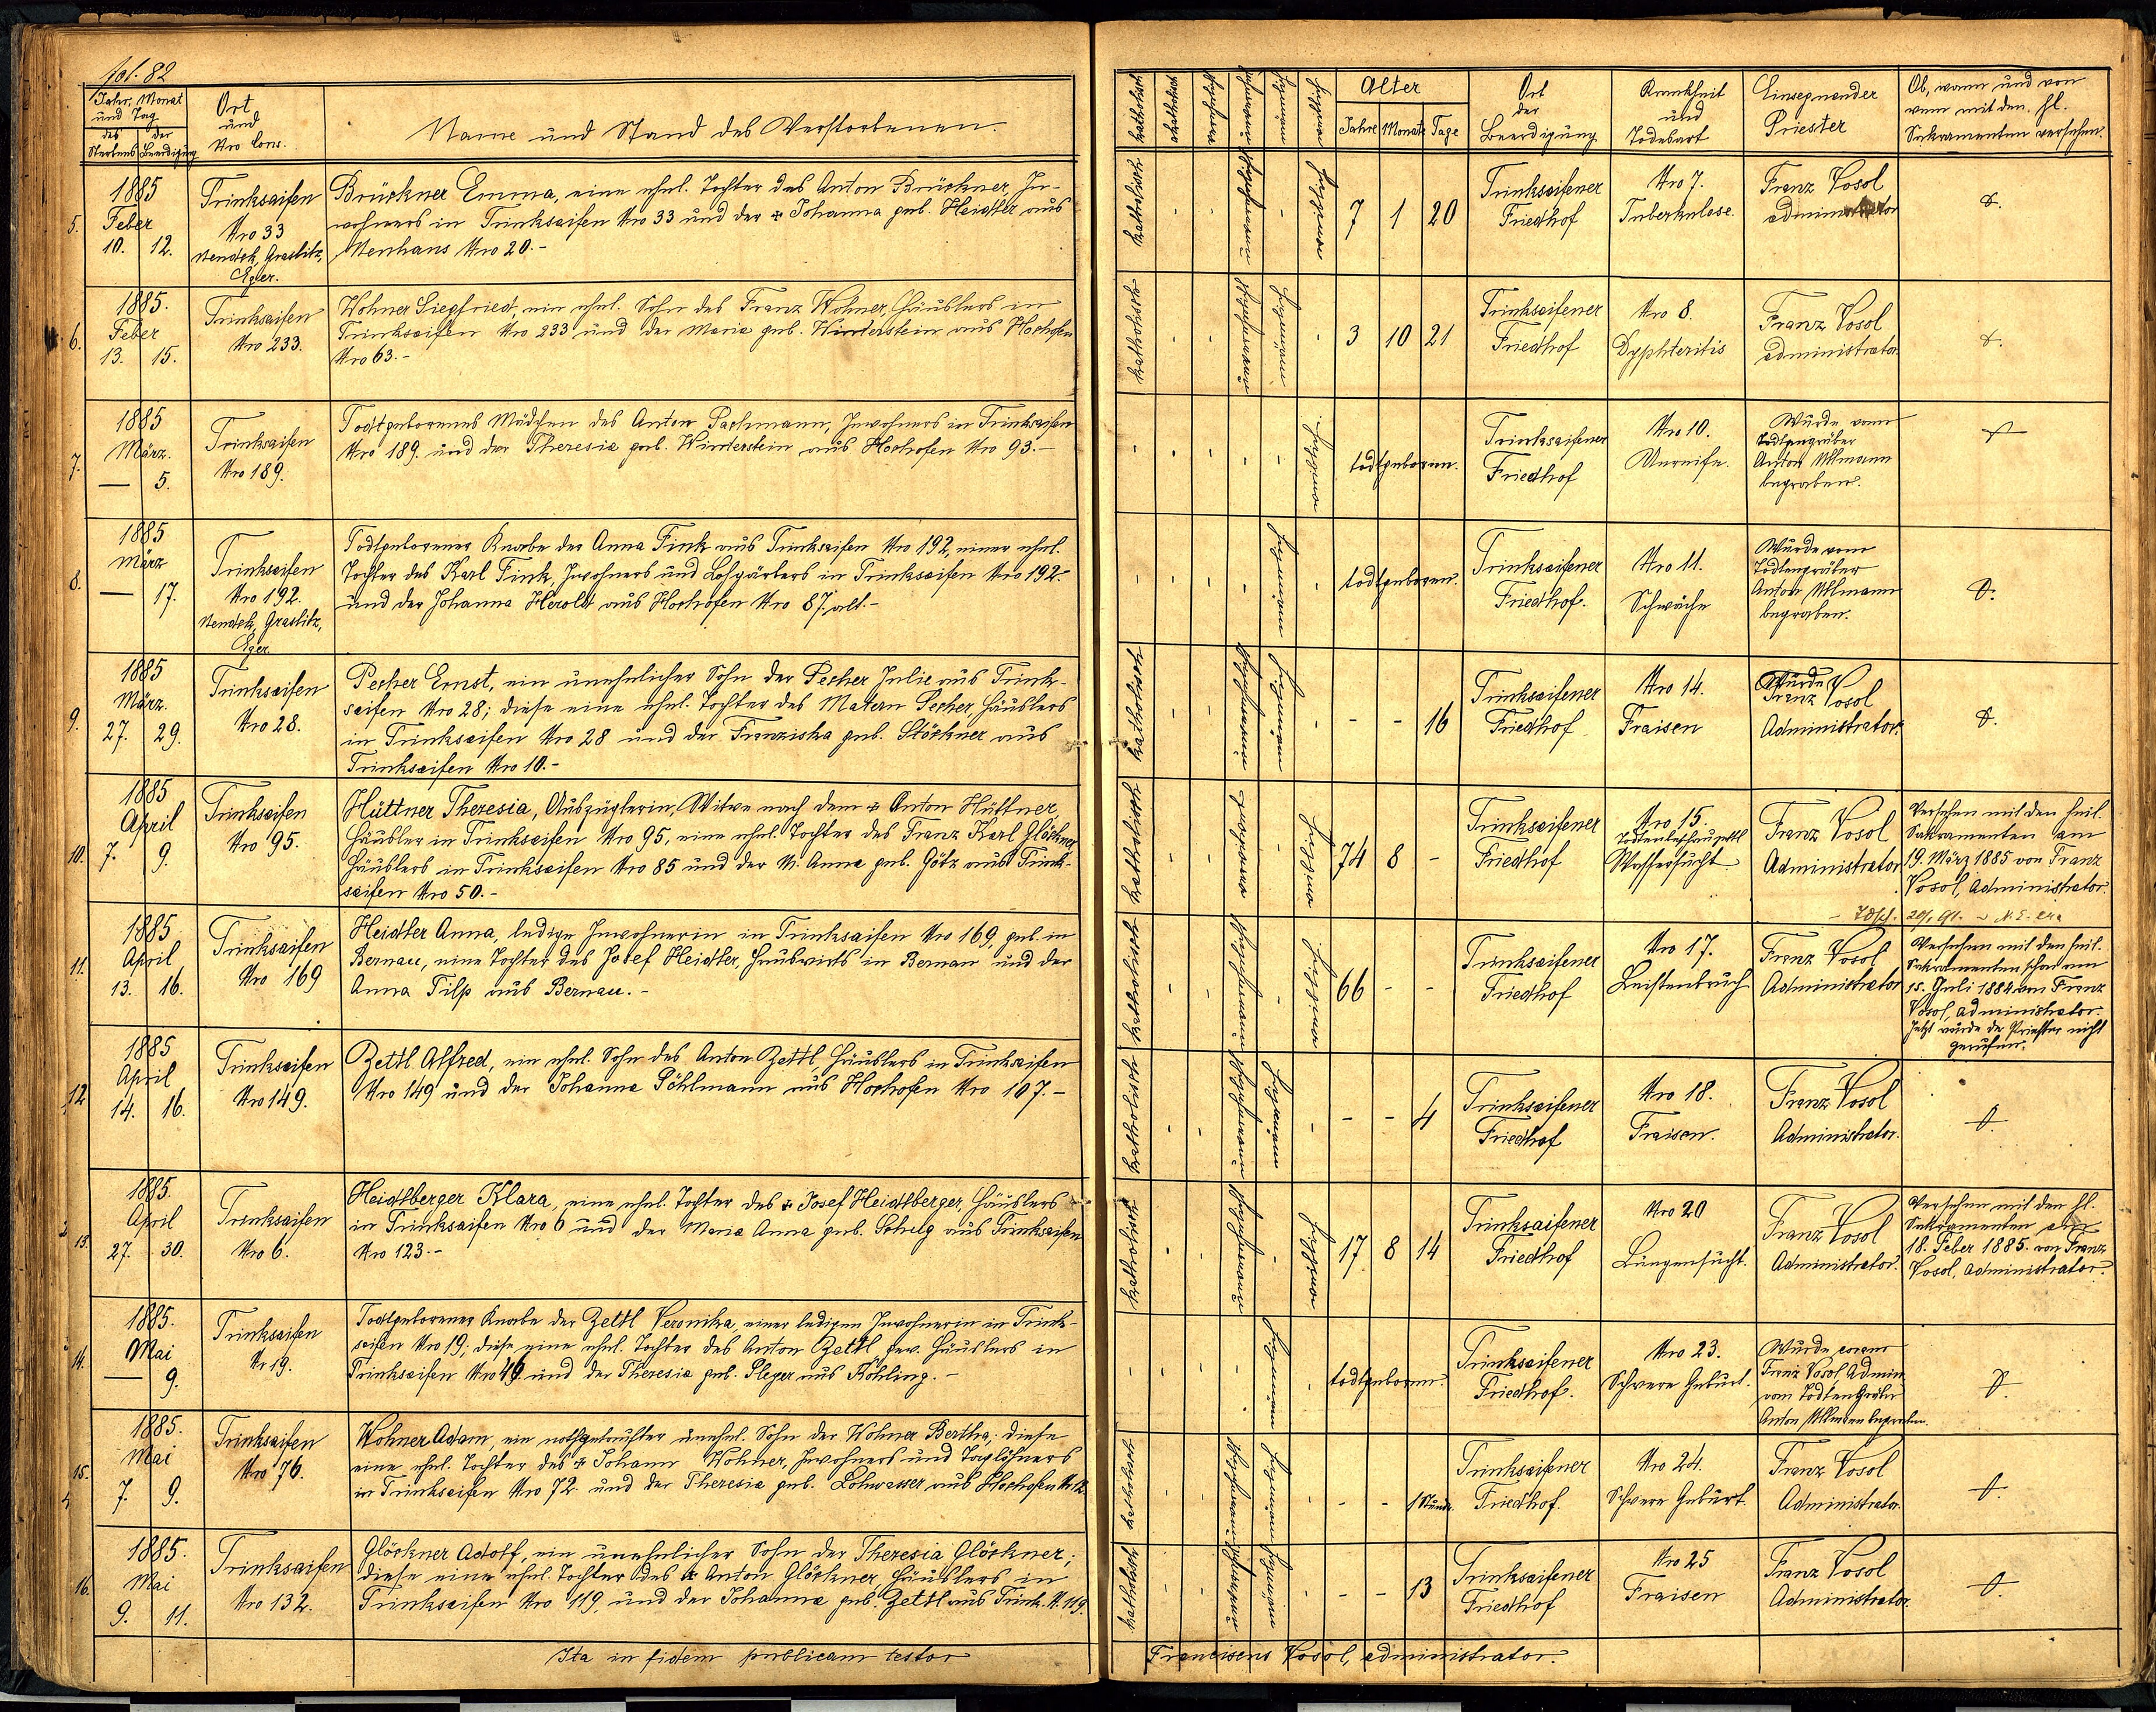 fol. 82
Jahr, Monat
und Tag
des Sterbens
der Beerdigung
Ort
und
Nro Cons.
Name und Stand des Verstorbenen.
katholisch
akatholisch
Alter
Jahre Monate Tage
Ort
der
Beerdigung
Krankheit
und
Todesart
Einsegnender
Priester
Ob, wann und von
wem mit den hl.
Sakramenten versehen.
5.
1885
Feber
10. 12.
Trinksaifen
Nro 33
Neudek, Graslitz,
Eger.
Brückner Emma, eine ehel. Tochter des Anton Brückner, In-
wohners in Trinksaifen Nro 33 und der Johanna geb. Heidler aus
Neuhaus Nro 20.-
katholisch
7 1 20
Trinksaifener
Friedhof
Nro 7.
Tuberkulose.
Franz Vosol
administrator
6.
1885.
Feber
13. 15.
Trinksaifen
Nro 233.
Wohner Siegfried, ein ehel. Sohn des Franz Wohner, Häuslers in
Trinksaifen Nro 233 und der Maria geb. Winterstein aus Hochofen
Nro 63.-
katholisch
3 10 21
Trinksaifener
Friedhof
Nro 8.
Dyphteritis
Franz Vosol
administrator.
7.
1885
März.
— 5.
Trinksaifen
Nro 189.
Todtgeborenes Mädchen des Anton Pachmann, Inwohners in Trinksaifen
Nro 189 und der Theresia geb. Winterstein aus Hochofen Nro 93.-
todtgeboren.
Trinksaifener
Friedhof
Nro 10.
Unreife.
Wurde vom
Todtengräber
Anton Ullmann
begraben.
8.
1885
März
— 17.
Trinksaifen
Nro 192.
Neudek, Graslitz,
Eger
Todtgeborener Knabe der Anna Fink aus Trinksaifen Nro 192, einer ehel.
Tochter des Karl Fink, Inwohners und in Trinksaifen Nro 192.-
und der Johanna Herold aus Hochofen Nro 87. alt.-
todtgeboren.
Trinksaifener
Friedhof.
Nro 11.
Schwäche
Wurde vom
Todtengräber
Anton Ullmann
begraben.
9.
1885
März.
27. 29.
Trinksaifen
Nro 28.
Pecher Ernst, ein unehelicher Sohn der Pecher Julie aus Trink-
saifen Nro 28; diese eine ehel. Tochter des Matern Pecher Häuslers
in Trinksaifen Nro 28 und der Franziska geb. Störkner aus
Trinksaifen Nro 10.-
katholisch
- - 16
Trinksaifener
Friedhof
Nro 14.
Fraisen
Wurde
Franz Vosol
Administrator.
10.
1885
April
7. 9.
Trinksaifen
Nro 95.
Hüttner Theresia, Auszüglerin, Witwe nach dem Anton Hüttner,
Häusler in Trinksaifen Nro 95, eine ehel. Tochter des Franz Karl Glöckner,
Häuslers in Trinksaifen Nro 85 und der M. Anna geb. Götz aus Trink-
saifen Nro 50.-
katholisch
74 8 -
Trinksaifener
Friedhof
Nro 15.
Wassersucht
Franz Vosol
Administrator
Versehen mit den heil.
Sakramenten am
19. März 1885 von Franz
Vosol, Administrator.
11.
1885
April
13. 16.
Trinksaifen
Nro 169
Heidler Anna, ledige Inwohnerin in Trinksaifen Nro 169, geb. in
Bernau, eine Tochter des Josef Heidler, Hauswirts in Bernau und der
Anna Tilp aus Bernau.-
katholisch
66 - -
Trinksaifener
Friedhof
Nro 17.
Leistenbruch
Franz Vosol
Administrator
Versehen mit den heil.
Sakramenten schon am
15. Juli 1884 von Franz
Vosol, administrator.
Jetzt wurde der Priester nicht
gerufen.
12
1885
April
14. 16.
Trinksaifen
Nro 149.
Zettl Alfred, ein ehel. Sohn des Anton Zettl, Häuslers in Trinksaifen
Nro 149 und der Johanna Pöhlmann aus Hochofen Nro 107.-
katholisch
- - 4
Trinksaifener
Friedhof
Nro 18.
Fraisen.
Franz Vosol
Administrator.
13.
1885.
April
27. 30.
Trinksaifen
Nro 6.
Heidlberger Klara, eine ehel. Tochter des Josef Heidlberger, Häuslers
in Trinksaifen Nro 6 und der Maria Anna geb. aus Trinksaifen
Nro 123.-
katholisch
17 8 14
Trinksaifener
Friedhof
Nro 20
Lungensucht.
Franz Vosol
Administrator.
Versehen mit den hl.
Sakramenten am
18. Feber 1885. von Franz
Vosol, Administrator.
14.
1885.
Mai
— 9.
Trinksaifen
Nr 19.
Todtgeborener Knabe der Zettl Veronika, einer ledigen Inwohnerin in Trink-
saifen Nro 19; diese eine ehel. Tochter des Anton Zettl, gew. Häuslers in
Trinksaifen Nro 49 und der Theresia geb. Pleyer aus Köhling.-
todtgeboren.
Trinksaifener
Friedhof.
Nro 23.
Schwere Geburt.
Wurde coram
Franz Vosol, Admin.
vom Todtengräber
Anton Ullmann begraben.
15.
1885.
Mai
7. 9.
Trinksaifen
Nro 76.
Wohner Adam, ein nothgetaufter unehel. Sohn der Wohner Bertha, diese
eine ehel. Tochter des Johann Wohner, Inwohners und Taglöhners
in Trinksaifen Nro 72 und der Theresia geb. Lohwasser aus Hochofen
katholisch
- - 1 Stunde.
Trinksaifener
Friedhof.
Nro 24.
Schwere Geburt.
Franz Vosol
Administrator.
16.
1885.
Mai
9. 11.
Trinksaifen
Nro 132.
Glöckner Adolf, ein unehelicher Sohn der Theresia Glöckner;
diese eine ehel. Tochter des Anton Glöckner, Häuslers in
Trinksaifen Nro 119, und der Johanna geb. Zettl aus Trink. N. 119.
katholisch
- - 13
Trinksaifener
Friedhof
Nro 25
Fraisen
Franz Vosol
Administrator.
Ita in fidem publicam testor
Franciscus Vosol, administrator.